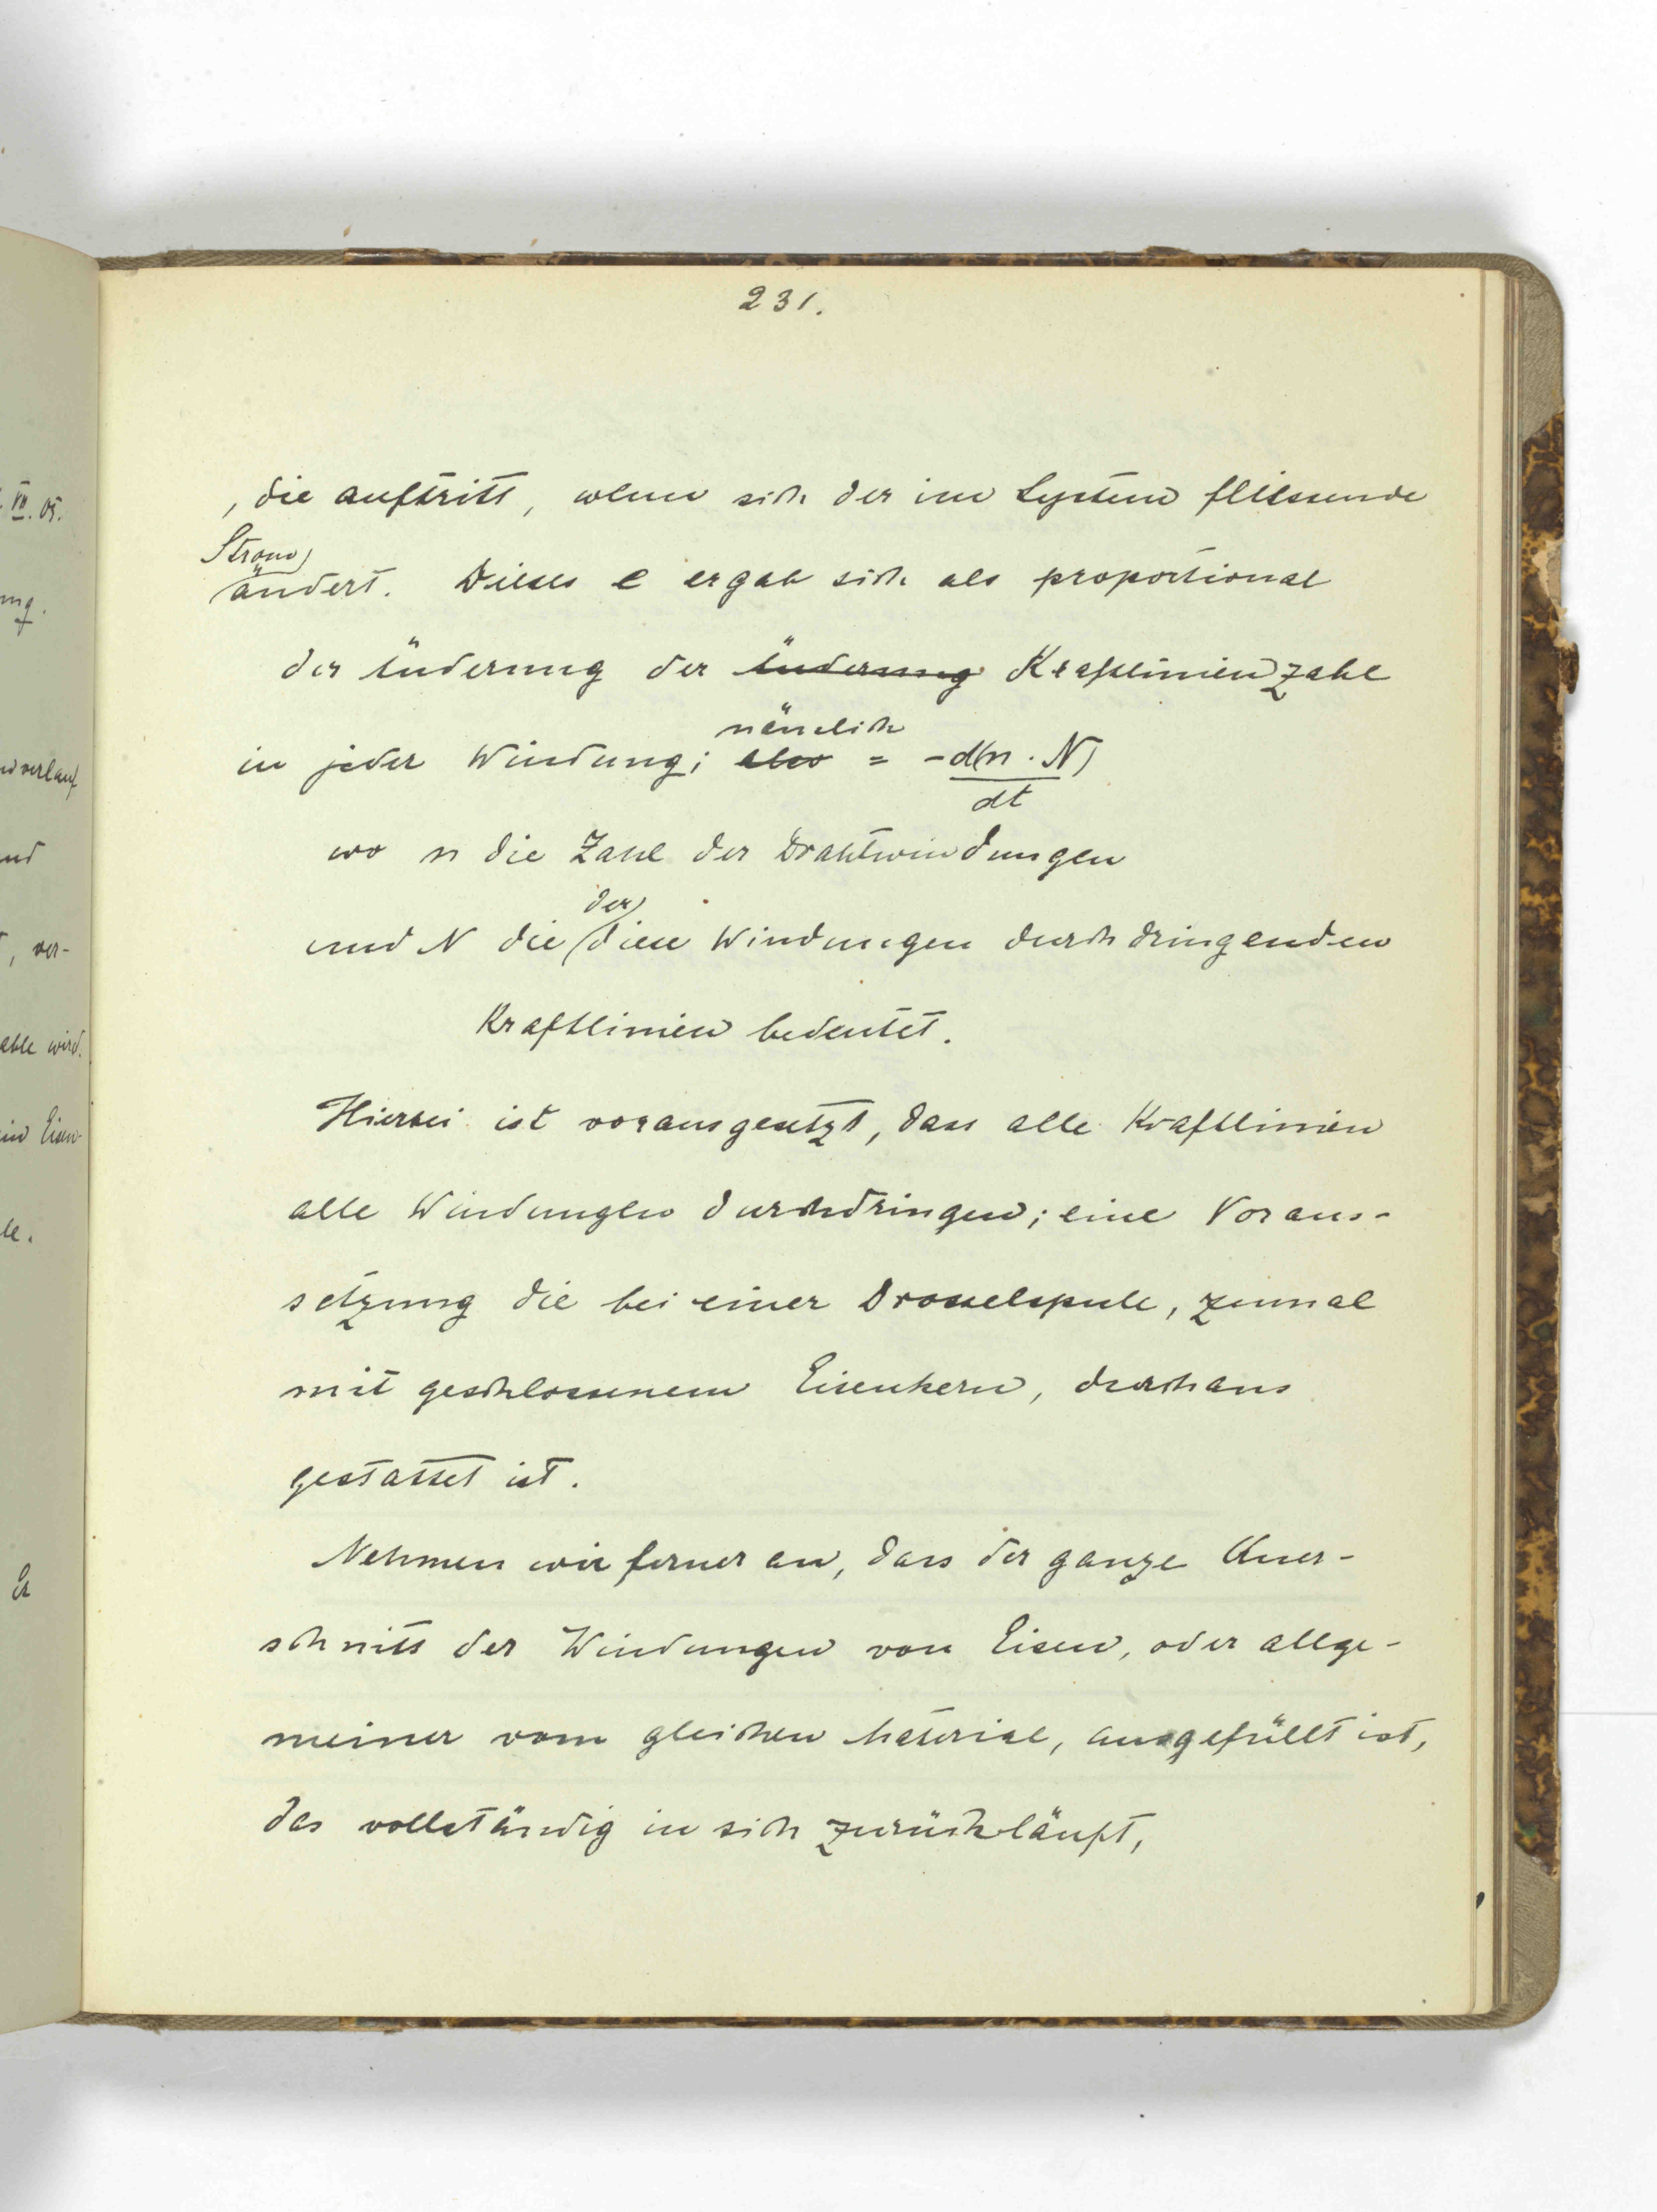 231.
, die auftritt, wenn sich der im System fliessende
Strom
ändert. Dieses e ergab sich als proportional
der Änderung der Änderung Kraftlinienzahl
nämlich
in jeder Windung; also = - d(n · N)
dt
wo n die Zahl der Drahtwindungen
der
und N die diese Windungen durchdringenden
Kraftlinien bedeutet.
Hierbei ist vorausgesetzt, dass alle Kraftlinien
alle Windungen durchdringen; eine Voraus-
setzung die bei einer Drosselspule, zumal
mit geschlossenem Eisenkern, durchaus
gestattet ist.
Nehmen wir ferner an, dass der ganze Quer-
schnitt der Windungen von Eisen, oder allge-
meiner vom gleichen Material, ausgefüllt ist,
das vollständig in sich zurückläuft,
VII. 05.
ng.
verlauf
und
, ver-
wird.
Eisen-
le.
Er